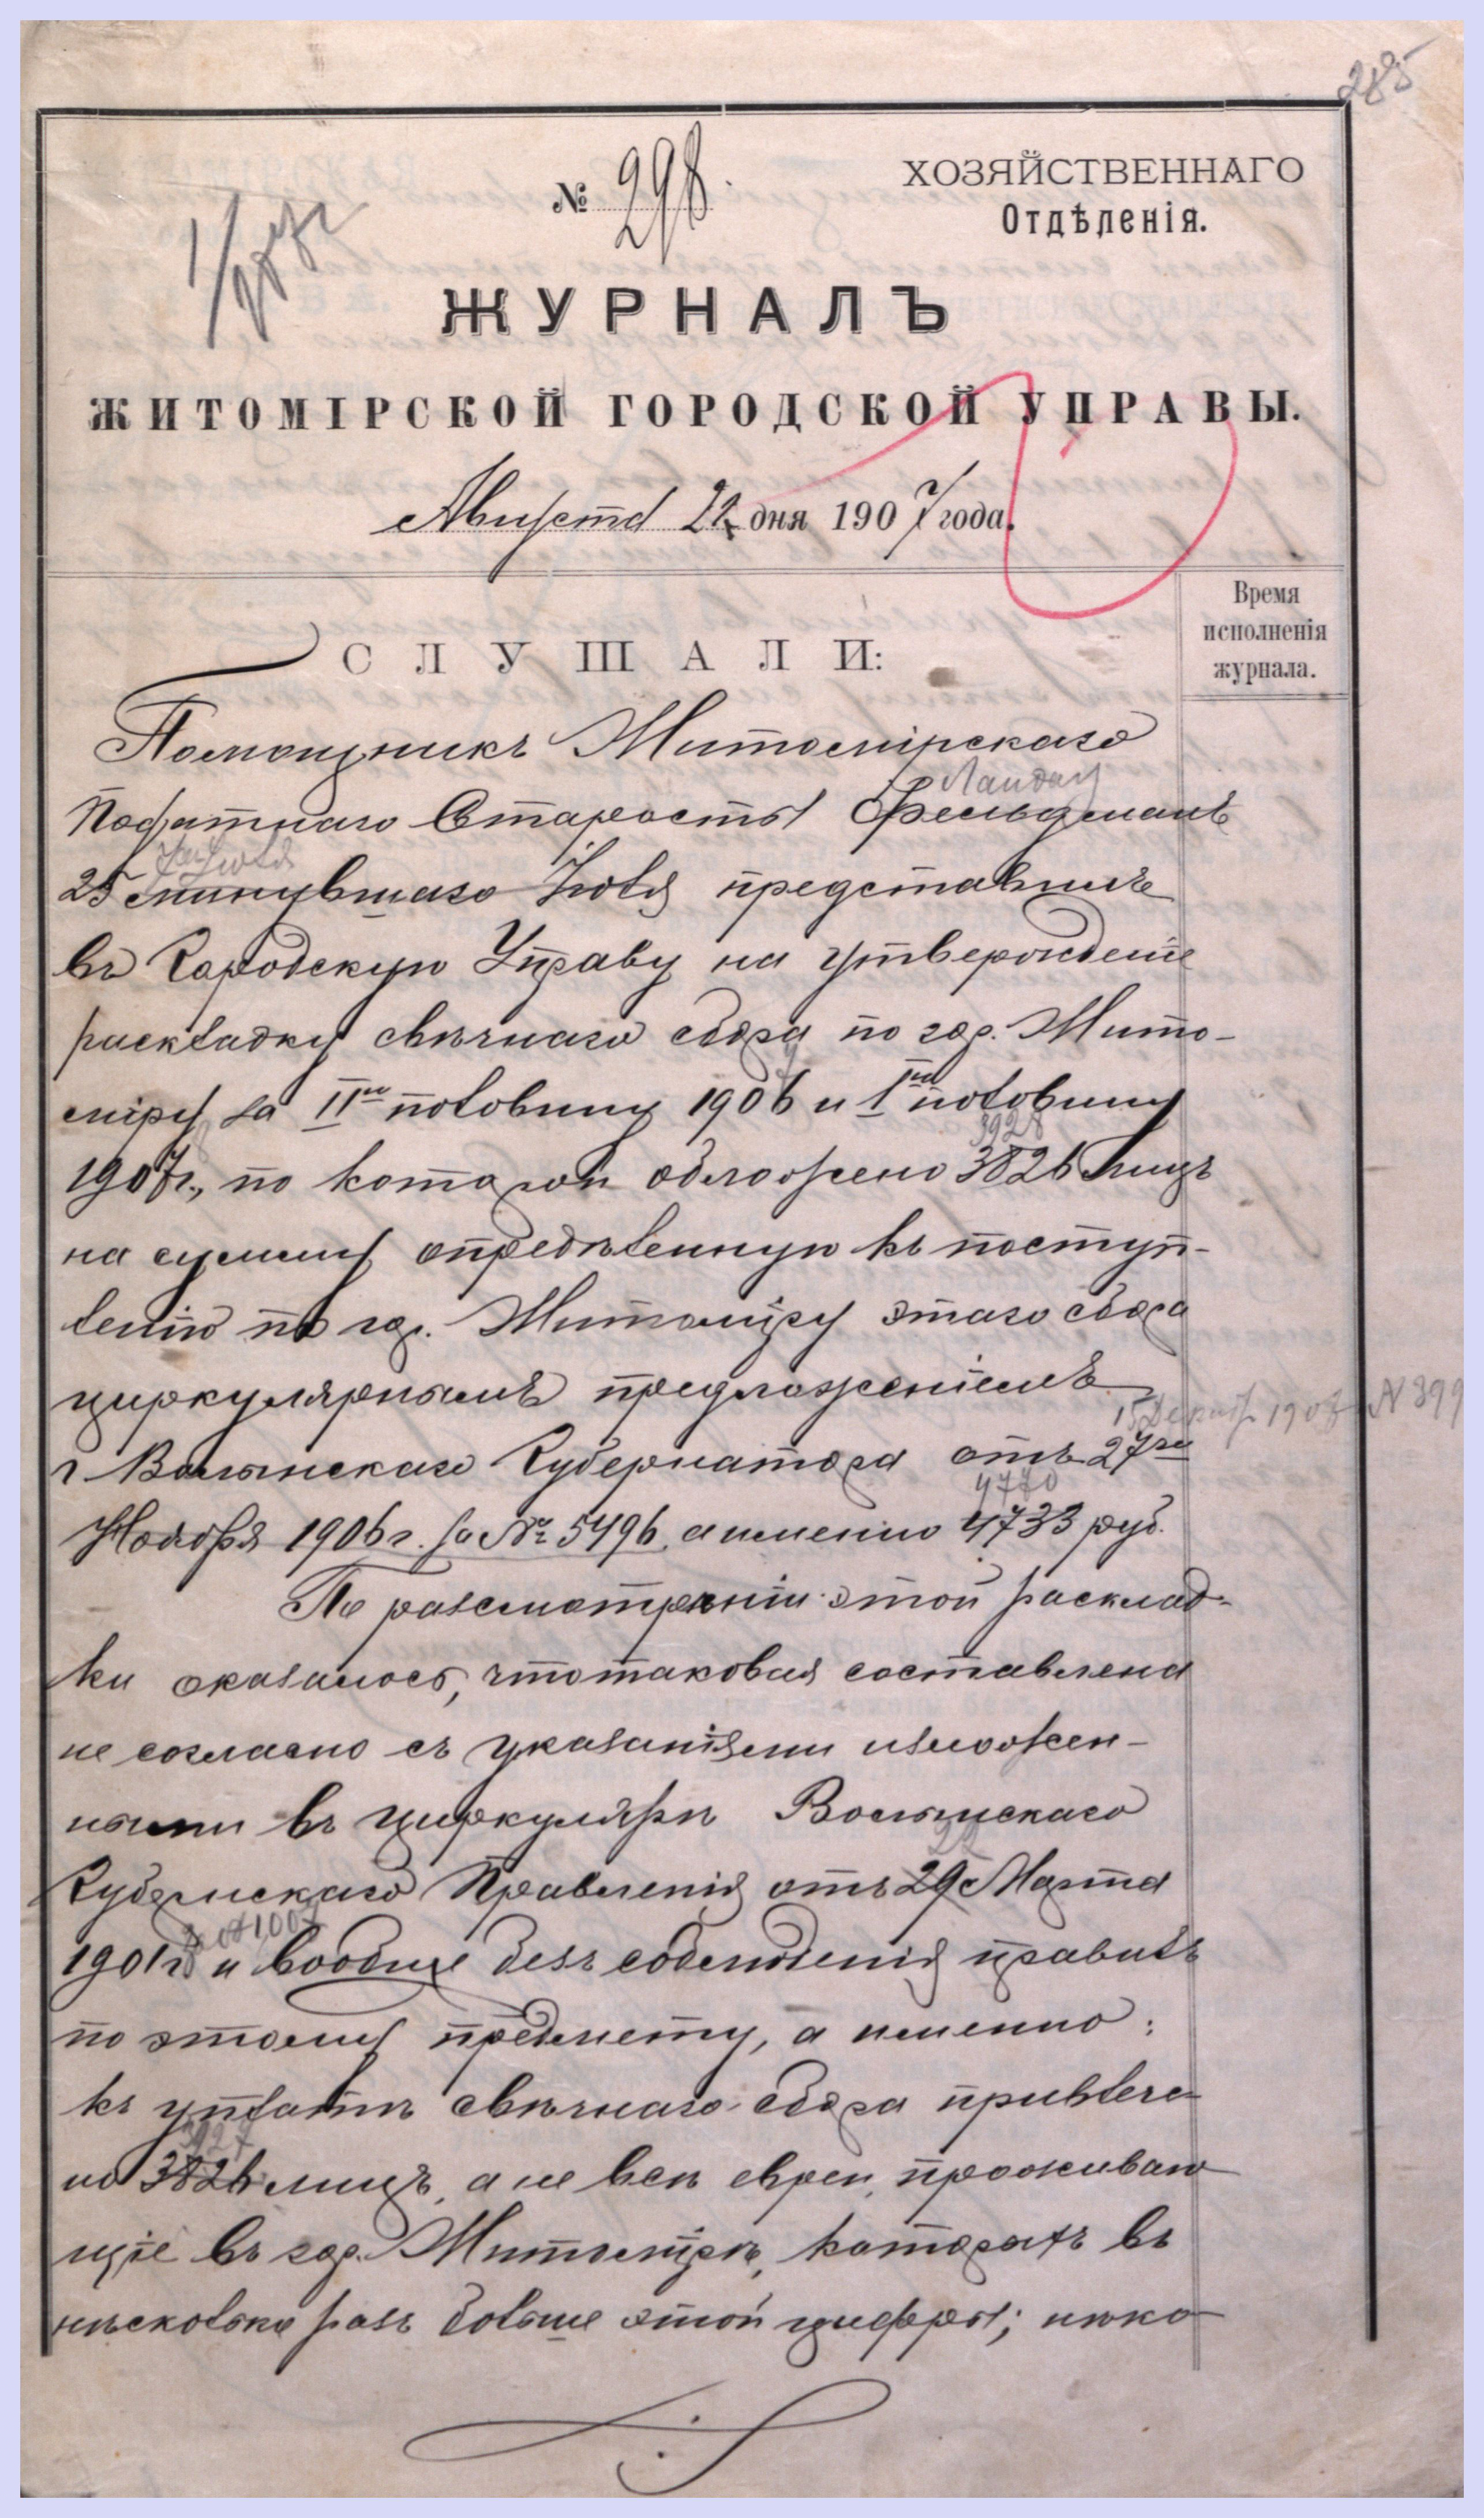 285
№ 298.
ХОЗЯЙСТВЕННАГО
Отдѣленія.
ЖУРНАЛЪ
ЖИТОМІРСКОЙ ГОРОДСКОЙ УПРАВЫ.
Августа 22 дня 1907 года.
Время
исполненія
журнала.
СЛУШАЛИ:
Помощникъ Житомірскаго
Ландау
Податнаго Старосты Фельдманъ
25 минувшаго Іюля представилъ
въ Городскую Управу на утвержденіе
раскладку свѣчнаго сбора по гор. Жито-
міру за II ю половину 1906 и I ю половину
3928
1907г., по которой обложено 3826 лицъ
на сумму опредѣленную къ поступ-
ленію по гор. Житоміру этого сбора
циркулярнымъ предложеніемъ
15 Декабр 1907 N 899
г. Волынскаго Губернатора отъ 27го
4770
Ноября 1906 г. за № 5496, а именно 4733 руб.
По разсмотрѣніи этой расклад-
ки оказалось, что таковая составлена
не согласно съ указаніями изложен-
ными въ циркулярѣ Волынскаго
Губернскаго Правленія отъ 29 Марта
1901г и вообще безъ соблюденія правилъ
по этому предмету, а именно:
къ уплатѣ свѣчнаго сбора привлече-
3927
но 3826 лицъ, а не всѣ евреи, проживаю
щіе въ гор. Житомірѣ, которыхъ въ
нѣсколько разъ больше этой цифры; нѣко-